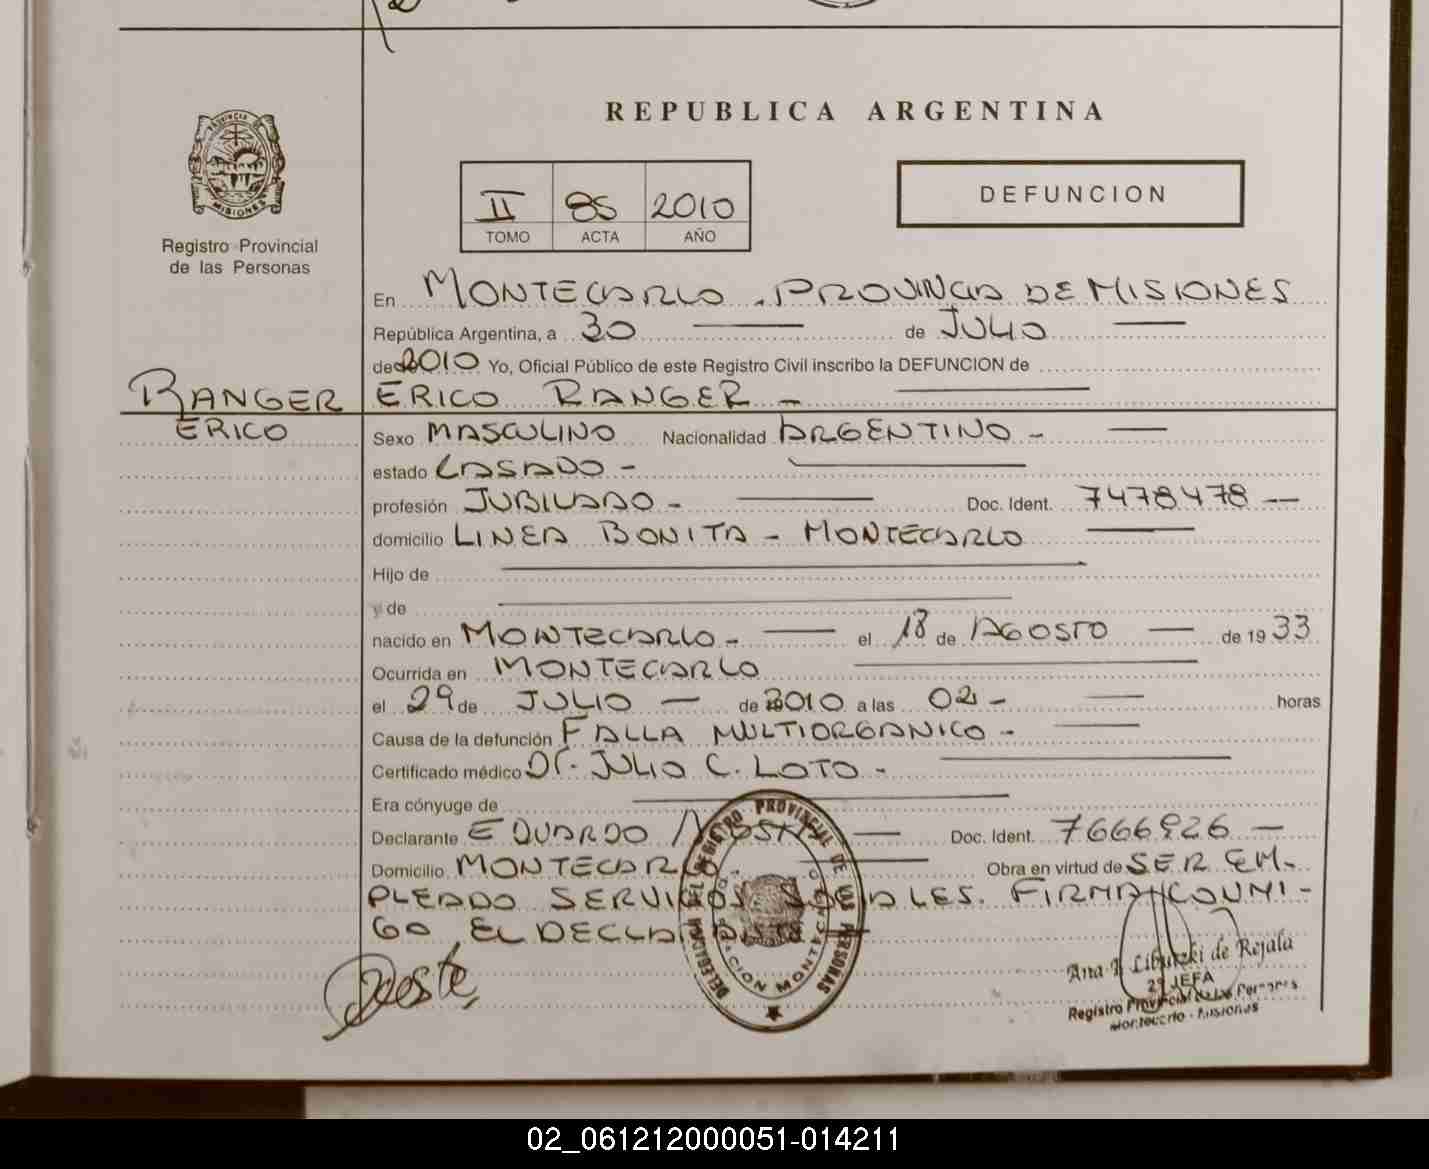 REPUBLICA ARGENTINA
PROVINCIA DE
MISIONES
Registro Provincial
de las Personas
DEFUNCION
II 85 2010
TOMO ACTA AÑO
En MONTECARLO, PROVINCIA DE MISIONES
República Argentina, a 30 de JULIO
de 2010 Yo, Oficial Público de este Registro Civil inscribo la DEFUNCION de
RANGER ERICO RANGER -
ERICO
Sexo MASCULINO Nacionalidad ARGENTINO -
estado CASADO -
profesión JUBILADO - Doc. Ident. 7478478 -
domicilio LINEA BONITA - MONTECARLO
Hijo de
y de
nacido en MONTECARLO - el 18 de AGOSTO de 1933
Ocurrida en MONTECARLO
el 29 de JULIO - de 2010 a las 02 - horas
Causa de la defunción FALLA MULTIORGANICO -
Certificado médico Dr. JULIO C. LOTO -
Era cónyuge de
Declarante EDUARDO Doc. Ident. 7666926 -
Domicilio MONTECARLO Obra en virtud de SER EM-
PLEADO SERVICIOS SOCIALES. FIRMAN CONMI-
GO, EL DECLARANTE
DELEGACION DEL REGISTRO PROVINCIAL DE LAS PERSONAS
DELEGACION MONTECARLO
Ana Libutzki de Rejala
2º JEFA
Registro Provincial de las Personas
Montecarlo - Misiones
02_061212000051-014211